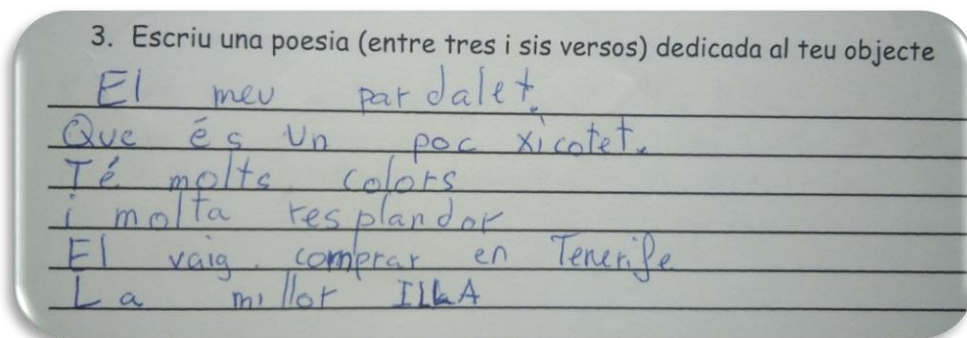 3. Escriu una poesia (entre tres i sis versos) dedicada al teu objecte
El meu pardalet.
Que és un poc xicotet.
Té molts colors
i molta resplandor
El vaig comprar en Tenerife
La millor ILLA